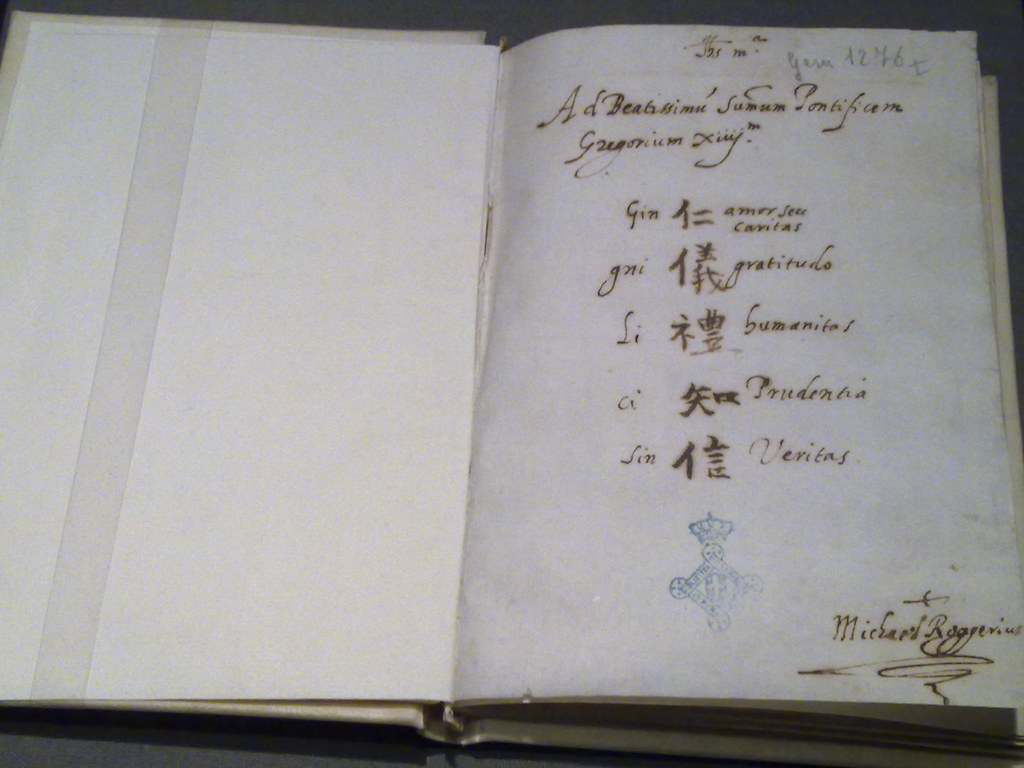 Jhs mᵃ
Gesu 1276
Ad Beatissimū Sum̄um Pontificem
Gregorium xiiijᵐ
Gin 仁 amor, seu caritas
gni 儀 gratitudo
Li 禮 humanitas
ci 知 Prudentia
sin 信 Veritas
Michael Roggerius